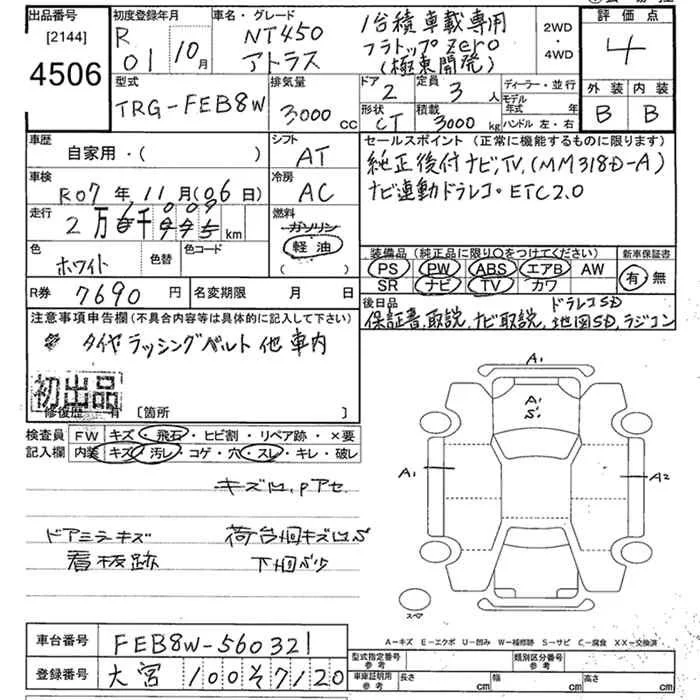 出品番号
[2144]
4506
初度登録年月
R 01 10月
車名・グレード
NT450
アトラス
1台積車載専用
フラトップZero
(極東開発)
2WD
・
4WD
評価点
4
外装 内装
B B
型式
TRG-FEB8W
排気量
3000 cc
ドア
2
定員
3 人
ディーラー・並行
モデル年式 年
形状
CT
積載
3000 kg
ハンドル 左・右
車歴
自家用・( )
シフト
AT
セールスポイント (正常に機能するものに限ります)
純正後付ナビ,TV,(MM318D-A)
ナビ連動ドラレコ・ETC2.0
車検
R07年11月(06日)
冷房
AC
走行
2万 km
燃料
ガソリン
軽油
( )
色
ホワイト
色替
色コード
装備品 (純正品に限り○をつけてください)
PS PW ABS エアB AW
SR ナビ TV カワ
新車保証書
有・無
R券 7690円
名変期限 月 日
後日品
ドラレコSD
保証書,取説,ナビ取説,地図SD,ラジコン
注意事項申告欄(不具合内容等は具体的に記入して下さい)
タイヤラッシングベルト他車内
初出品
修復歴 有 [箇所 ]
検査員
記入欄
FW キズ・飛石・ヒビ割・リペア跡・×要
内装 キズ・汚レ・コゲ・穴・スレ・キレ・破レ
ドアミラーキズ
看板跡
A1
A1
S'
A1
A2
スペア
A-キズ E-エクボ U-凹み W-補修跡 S-サビ C-腐食 XX-交換済
車台番号
FEB8W-560321
登録番号
大宮100そ7120
型式指定番号
参考
類別区分番号
参考
車庫証明用
参考
長さ cm
幅 cm
高さ cm